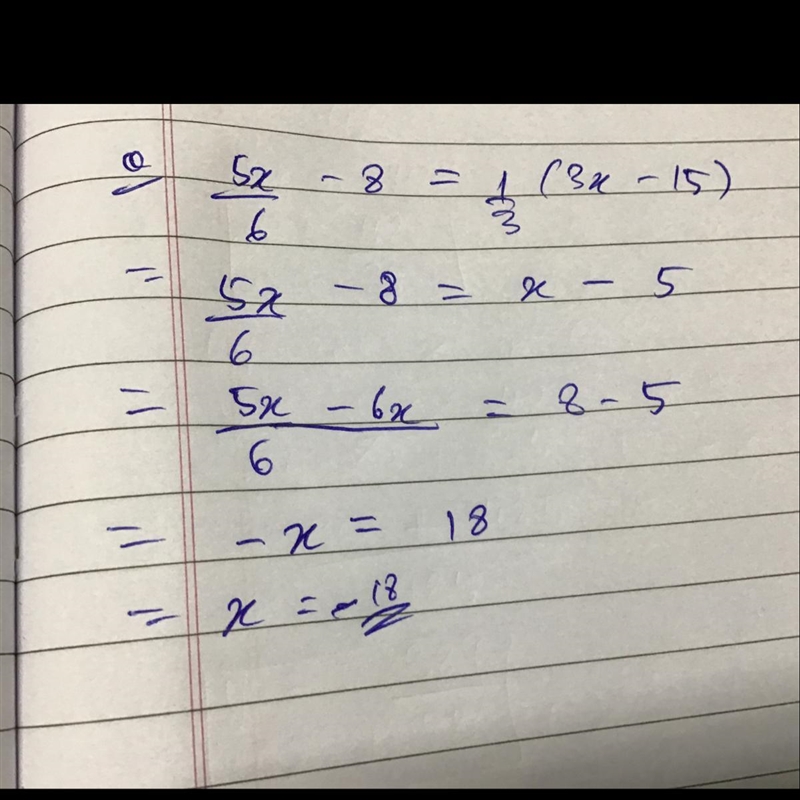 Q 5x/6 - 8 = 1/3 (3x - 15)
= 5x/6 - 8 = x - 5
= 5x - 6x/6 = 8 - 5
= -x = 18
= x = -18